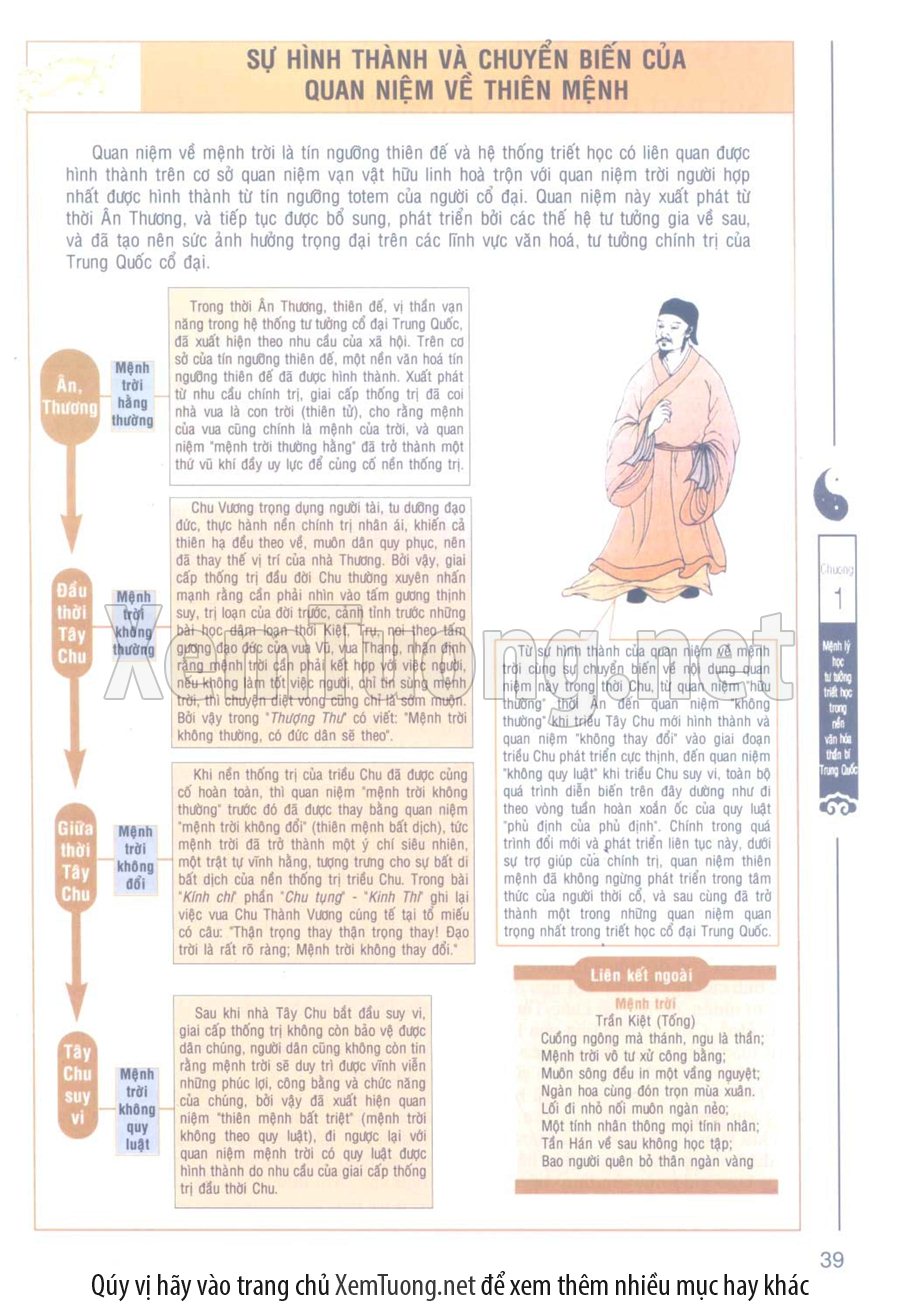 SỰ HÌNH THÀNH VÀ CHUYỂN BIẾN CỦA
QUAN NIỆM VỀ THIÊN MỆNH
Quan niệm về mệnh trời là tín ngưỡng thiên đế và hệ thống triết học có liên quan được
hình thành trên cơ sở quan niệm vạn vật hữu linh hoà trộn với quan niệm trời người hợp
nhất được hình thành từ tín ngưỡng totem của người cổ đại. Quan niệm này xuất phát từ
thời Ân Thương, và tiếp tục được bổ sung, phát triển bởi các thế hệ tư tưởng gia về sau,
và đã tạo nên sức ảnh hưởng trọng đại trên các lĩnh vực văn hoá, tư tưởng chính trị của
Trung Quốc cổ đại.
Ân,
Thương
Mệnh
trời
hằng
thường
Trong thời Ân Thương, thiên đế, vị thần vạn
năng trong hệ thống tư tưởng cổ đại Trung Quốc,
đã xuất hiện theo nhu cầu của xã hội. Trên cơ
sở của tín ngưỡng thiên đế, một nền văn hoá tín
ngưỡng thiên đế đã được hình thành. Xuất phát
từ nhu cầu chính trị, giai cấp thống trị đã coi
nhà vua là con trời (thiên tử), cho rằng mệnh
của vua cũng chính là mệnh của trời, và quan
niệm "mệnh trời thường hằng" đã trở thành một
thứ vũ khí đầy uy lực để củng cố nền thống trị.
Đầu
thời
Tây
Chu
Mệnh
trời
không
thường
Chu Vương trọng dụng người tài, tu dưỡng đạo
đức, thực hành nền chính trị nhân ái, khiến cả
thiên hạ đều theo về, muôn dân quy phục, nên
đã thay thế vị trí của nhà Thương. Bởi vậy, giai
cấp thống trị đầu đời Chu thường xuyên nhấn
mạnh rằng cần phải nhìn vào tấm gương thịnh
suy, trị loạn của đời trước, cảnh tỉnh trước những
bài học dâm loạn thời Kiệt, Trụ, noi theo tấm
gương đạo đức của vua Vũ, vua Thang, nhận định
rằng mệnh trời cần phải kết hợp với việc người,
nếu không làm tốt việc người, chỉ tin sùng mệnh
trời, thì chuyện diệt vong cũng chỉ là sớm muộn.
Bởi vậy trong "Thượng Thư" có viết: "Mệnh trời
không thường, có đức dân sẽ theo".
Giữa
thời
Tây
Chu
Mệnh
trời
không
đổi
Khi nền thống trị của triều Chu đã được củng
cố hoàn toàn, thì quan niệm "mệnh trời không
thường" trước đó đã được thay bằng quan niệm
"mệnh trời không đổi" (thiên mệnh bất dịch), tức
mệnh trời đã trở thành một ý chí siêu nhiên,
một trật tự vĩnh hằng, tượng trưng cho sự bất di
bất dịch của nền thống trị triều Chu. Trong bài
"Kính chi" phần "Chu tụng" - "Kinh Thi" ghi lại
việc vua Chu Thành Vương cúng tế tại tổ miếu
có câu: "Thận trọng thay thận trọng thay! Đạo
trời là rất rõ ràng; Mệnh trời không thay đổi."
Tây
Chu
suy
vi
Mệnh
trời
không
quy
luật
Sau khi nhà Tây Chu bắt đầu suy vi,
giai cấp thống trị không còn bảo vệ được
dân chúng, người dân cũng không còn tin
rằng mệnh trời sẽ duy trì được vĩnh viễn
những phúc lợi, công bằng và chức năng
của chúng, bởi vậy đã xuất hiện quan
niệm "thiên mệnh bất triệt" (mệnh trời
không theo quy luật), đi ngược lại với
quan niệm mệnh trời có quy luật được
hình thành do nhu cầu của giai cấp thống
trị đầu thời Chu.
Từ sự hình thành của quan niệm về mệnh
trời cùng sự chuyển biến về nội dung quan
niệm này trong thời Chu, từ quan niệm "hữu
thường" thời Ân đến quan niệm "không
thường" khi triều Tây Chu mới hình thành và
quan niệm "không thay đổi" vào giai đoạn
triều Chu phát triển cực thịnh, đến quan niệm
"không quy luật" khi triều Chu suy vi, toàn bộ
quá trình diễn biến trên đây dường như đi
theo vòng tuần hoàn xoắn ốc của quy luật
"phủ định của phủ định". Chính trong quá
trình đổi mới và phát triển liên tục này, dưới
sự trợ giúp của chính trị, quan niệm thiên
mệnh đã không ngừng phát triển trong tâm
thức của người thời cổ, và sau cùng đã trở
thành một trong những quan niệm quan
trọng nhất trong triết học cổ đại Trung Quốc.
Liên kết ngoài
Mệnh trời
Trần Kiệt (Tống)
Cuồng ngông mà thánh, ngu là thần;
Mệnh trời vô tư xử công bằng;
Muôn sông đều in một vầng nguyệt;
Ngàn hoa cùng đón trọn mùa xuân.
Lối đi nhỏ nối muôn ngàn nẻo;
Một tính nhân thông mọi tính nhân;
Tần Hán về sau không học tập;
Bao người quên bỏ thân ngàn vàng
Chương
1
Mệnh lý
học
tư tưởng
triết học
trong
nền
văn hóa
thần bí
Trung Quốc
XemTuong.net
39
Qúy vị hãy vào trang chủ XemTuong.net để xem thêm nhiều mục hay khác